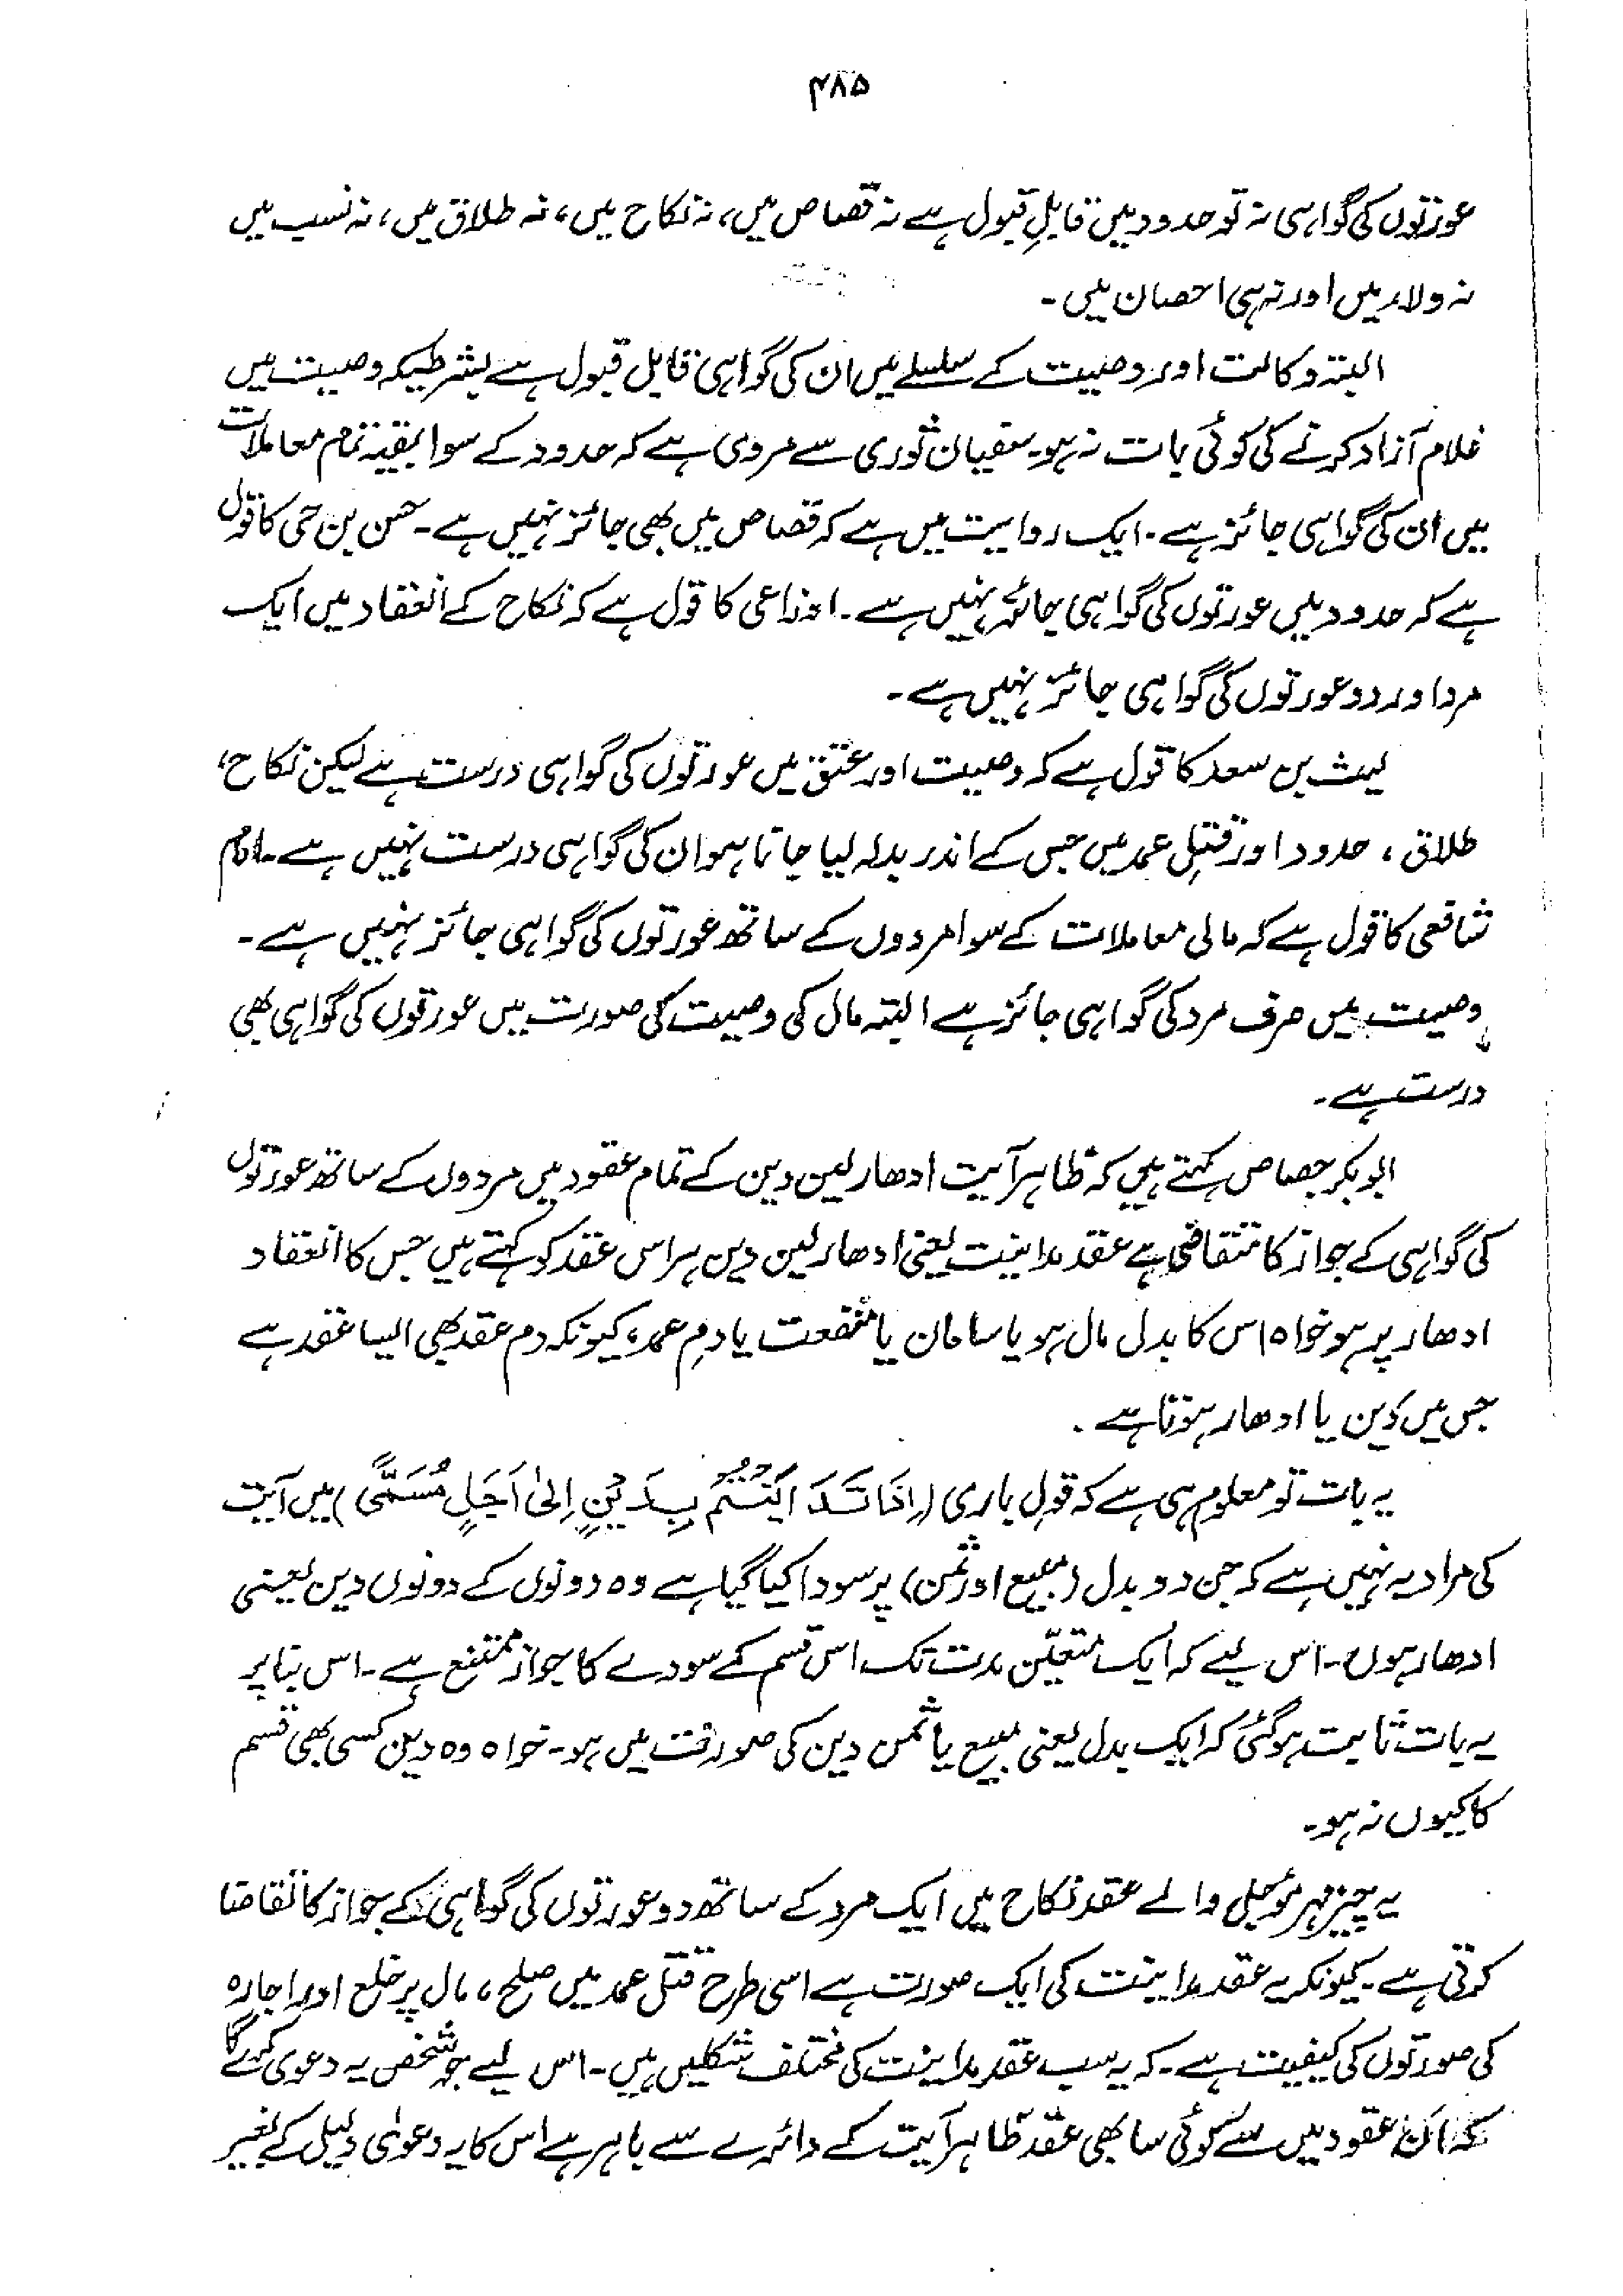 ۴۸۵
عورتوں کی گواہی نہ تو حدود میں قابلِ قبول ہے نہ قصاص میں، نہ نکاح میں، نہ طلاق میں، نہ نسب میں
نہ ولاء میں اور نہ ہی احصان میں۔
البتہ وکالت اور وصیت کے سلسلے میں ان کی گواہی قابل قبول ہے بشرطیکہ وصیت میں
غلام آزاد کرنے کی کوئی بات نہ ہو۔ سفیان ثوری سے مروی ہے کہ حدود کے سوا بقیہ تمام معاملات
میں ان کی گواہی جائز ہے۔ ایک روایت میں ہے کہ قصاص میں بھی جائز نہیں ہے۔ حسن بن حی کا قول
ہے کہ حدود میں عورتوں کی گواہی جائز نہیں ہے۔ اوزاعی کا قول ہے کہ نکاح کے انعقاد میں ایک
مرد اور دو عورتوں کی گواہی جائز نہیں ہے۔
لیث بن سعد کا قول ہے کہ وصیت اور عتق میں عورتوں کی گواہی درست ہے لیکن نکاح،
طلاق، حدود اور قتلِ عمد میں جس کے اندر بدلہ لیا جاتا ہو ان کی گواہی درست نہیں ہے۔ امام
شافعی کا قول ہے کہ مالی معاملات کے سوا مردوں کے ساتھ عورتوں کی گواہی جائز نہیں ہے۔
وصیت میں صرف مرد کی گواہی جائز ہے البتہ مال کی وصیت کی صورت میں عورتوں کی گواہی بھی
درست ہے۔
ابوبکر جصاص کہتے ہیں کہ ظاہر آیت ادھار لین دین کے تمام عقود میں مردوں کے ساتھ عورتوں
کی گواہی کے جواز کا متقاضی ہے عقد مداینت یعنی ادھار لین دین ہر اس عقد کو کہتے ہیں جس کا انعقاد
ادھار پر ہو خواہ اس کا بدل مال ہو یا سامان یا منفعت یا دمِ عمد، کیونکہ دم عقد بھی ایسا عقد ہے
جس میں دَین یا ادھار ہوتا ہے۔
یہ بات تو معلوم ہی ہے کہ قولِ باری (اِذَا تَدَایَنْتُمْ بِدَیْنٍ اِلیٰ اَجَلٍ مُّسَمًّی) میں آیت
کی مراد یہ نہیں ہے کہ جن دو بدل (مبیع اور ثمن) پر سودا کیا گیا ہے وہ دونوں کے دونوں دین یعنی
ادھار ہوں۔ اس لیے کہ ایک متعیّن مدت تک اس قسم کے سودے کا جواز ممتنع ہے۔ اس بنا پر
یہ بات ثابت ہوگئی کہ ایک بدل یعنی مبیع یا ثمن دین کی صورت میں ہو۔ خواہ وہ دین کسی بھی قسم
کا کیوں نہ ہو۔
یہ چیز مہر مؤجل والے عقد نکاح میں ایک مرد کے ساتھ دو عورتوں کی گواہی کے جواز کا تقاضا
کرتی ہے۔ کیونکہ یہ عقد مداینت کی ایک صورت ہے اسی طرح قتل عمد میں صلح، مال پر خلع اور اجارہ
کی صورتوں کی کیفیت ہے۔ کہ یہ سب عقد مداینت کی مختلف شکلیں ہیں۔ اس لیے جو شخص یہ دعوی کرے گا
کہ ان عقود میں سے کوئی سا بھی عقد ظاہر آیت کے دائرے سے باہر ہے اس کا یہ دعویٰ دلیل کے بغیر